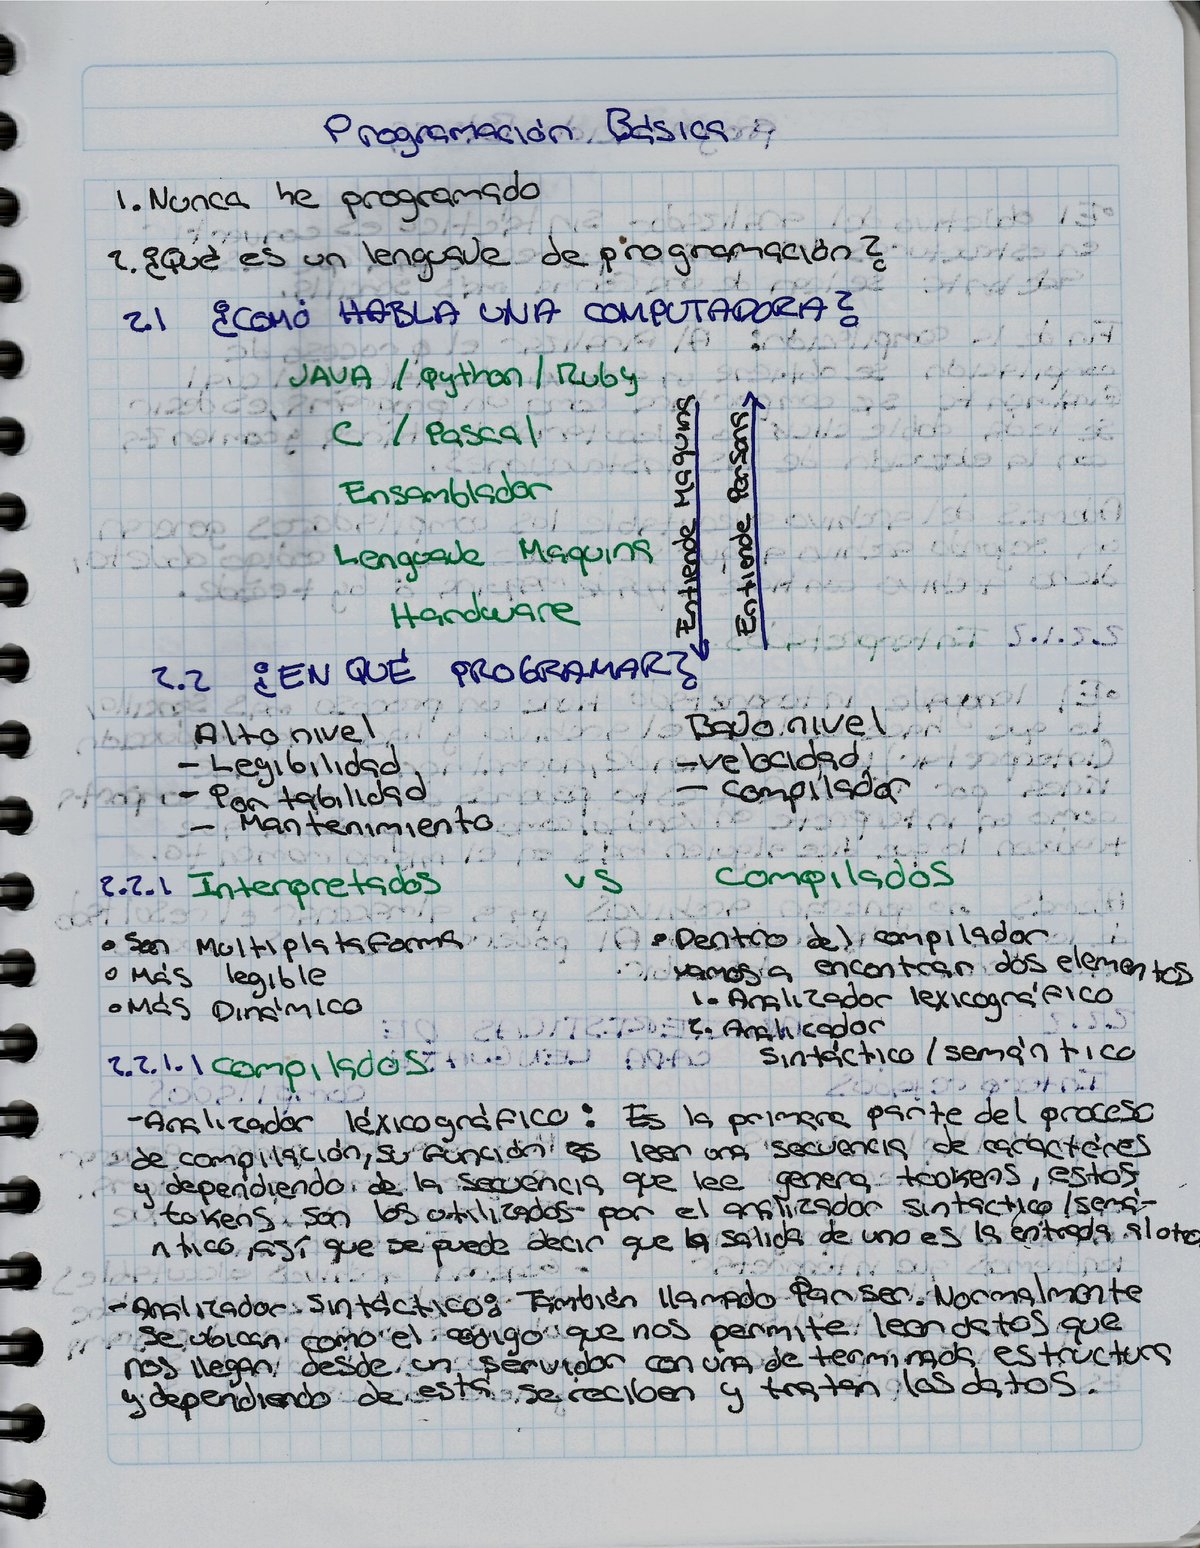 Programación Básica
1. Nunca he programado
2. ¿Qué es un lenguaje de programación?
2.1 ¿COMÓ HABLA UNA COMPUTADORA?
JAVA / Python / Ruby
C / Pascal
Ensamblador
Lenguaje Maquina
Hardware
Entiende Maquina
Entiende Persona
2.2 ¿EN QUÉ PROGRAMAR?
Alto nivel
- Legibilidad
- Portabilidad
- Mantenimiento
Bajo nivel
- velocidad
- compilador
2.2.1 Interpretados vs Compilados
• Son Multiplataforma
• Más legible
• Más Dinámico
• Dentro del compilador
vamos a encontrar dos elementos
1. Analizador lexicográfico
2. Analizador
sintáctico / semántico
2.2.1.1 Compilados
- Analizador léxicográfico: Es la primera parte del proceso
de compilación, su función es leer una secuencia de carácteres
y dependiendo de la secuencia que lee genera tookens, estos
tokens son los utilizados por el analizador sintáctico / semá-
ntico, así que se puede decir que la salida de uno es la entrada al otro
- Analizador sintáctico: También llamado Parser. Normalmente
se ubican como el código que nos permite leer datos que
nos llegan desde un servidor con una determinada estructura
y dependiendo de está se reciben y traten los datos.